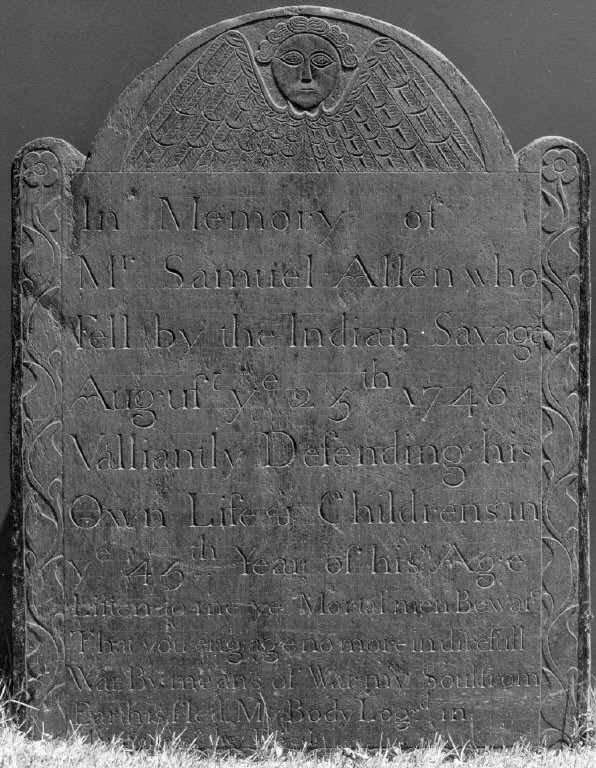 In Memory of
Mr Samuel Allen who
Fell by the Indian Savage
Auguſt ye 25th 1746
Valliantly Defending his
Own Life & Childrens in
ye 45th Year of his Age
Liſten to me ye Mortal men Bewar
That you engage no more in direfull
War By means of War my Soul from
Earth is fled My Body Logd in